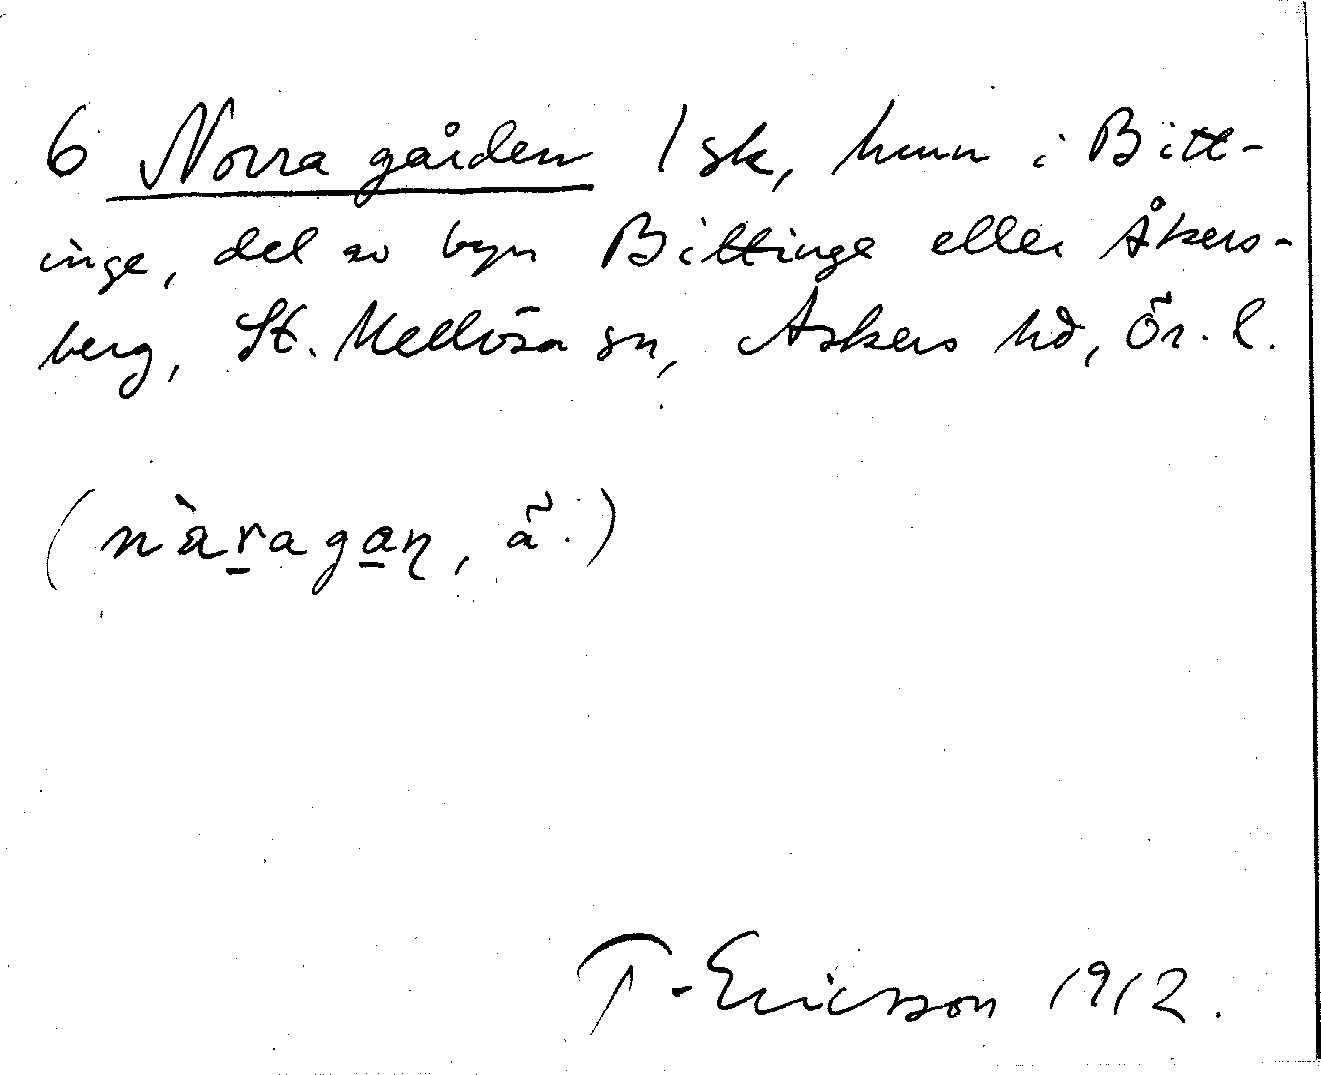 6 Norra gården 1 sk, hmn i Bitt-
inge, del av byn Bittinge eller Åkers-
berg, St. Mellösa sn, Askers hd, Ör. l.
(nàr̲aga̲ɳ, ã.)
T. Ericsson 1912.